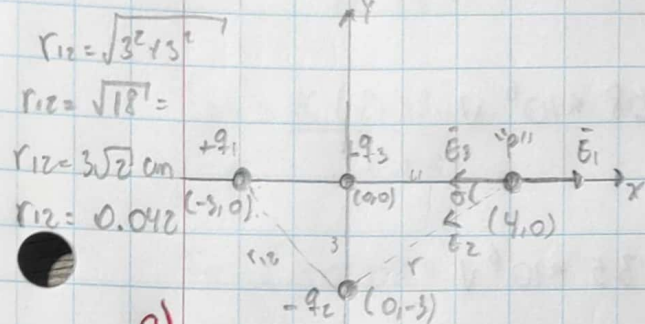 r12 = √3² + 3²
r12 = √18 =
r12 = 3√2 cm
r12 = 0.042
Y
+q1
-q3
Ē3
"p"
Ē1
x
(-3,0)
(0,0)
4
α
(4,0)
Ē2
r12
3
r
-q2
(0,-3)
a)